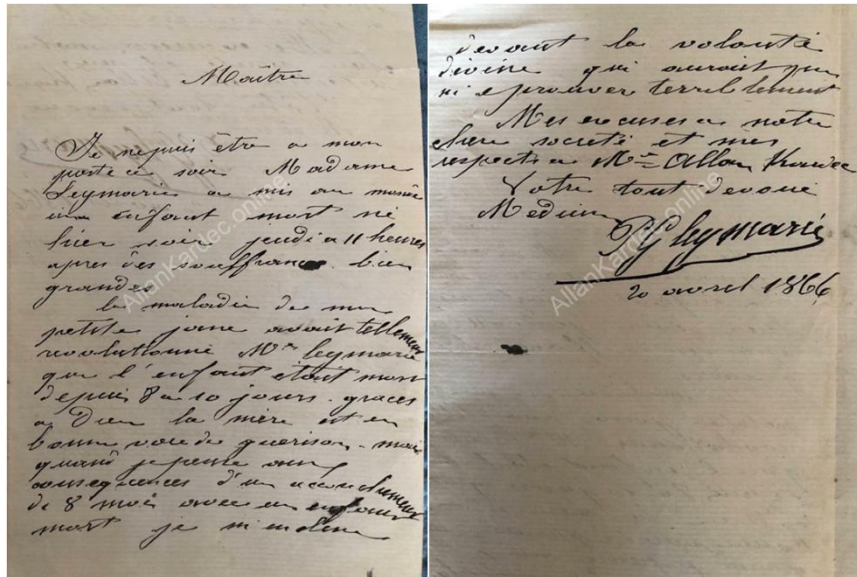 Maître
Je ne puis être a mon
poste ce soir Madame
Leymarie a mis au monde
un enfant mort ne
hier soir jeudi a 11 heures
apres des souffrances bien
grandes
la maladie de ma
petite jane avait tellement
revolutionné Mme leymarie
que l'enfant etait mort
depuis 8 a 10 jours. graces
a Dieu la mère est en
bonne voie de guerison. mais
quand je pense aux
consequences d'un accouchement
de 8 mois avec un enfant
mort je m'incline
devant la volonté
divine qui aurait pu
m'eprouver terriblement
Mes excuses a notre
chere societé et mes
respects a Mme Allan Kardec
Votre tout devoué
Medium
PG Leymarie
20 avril 1866
AllanKardec.online
AllanKardec.online